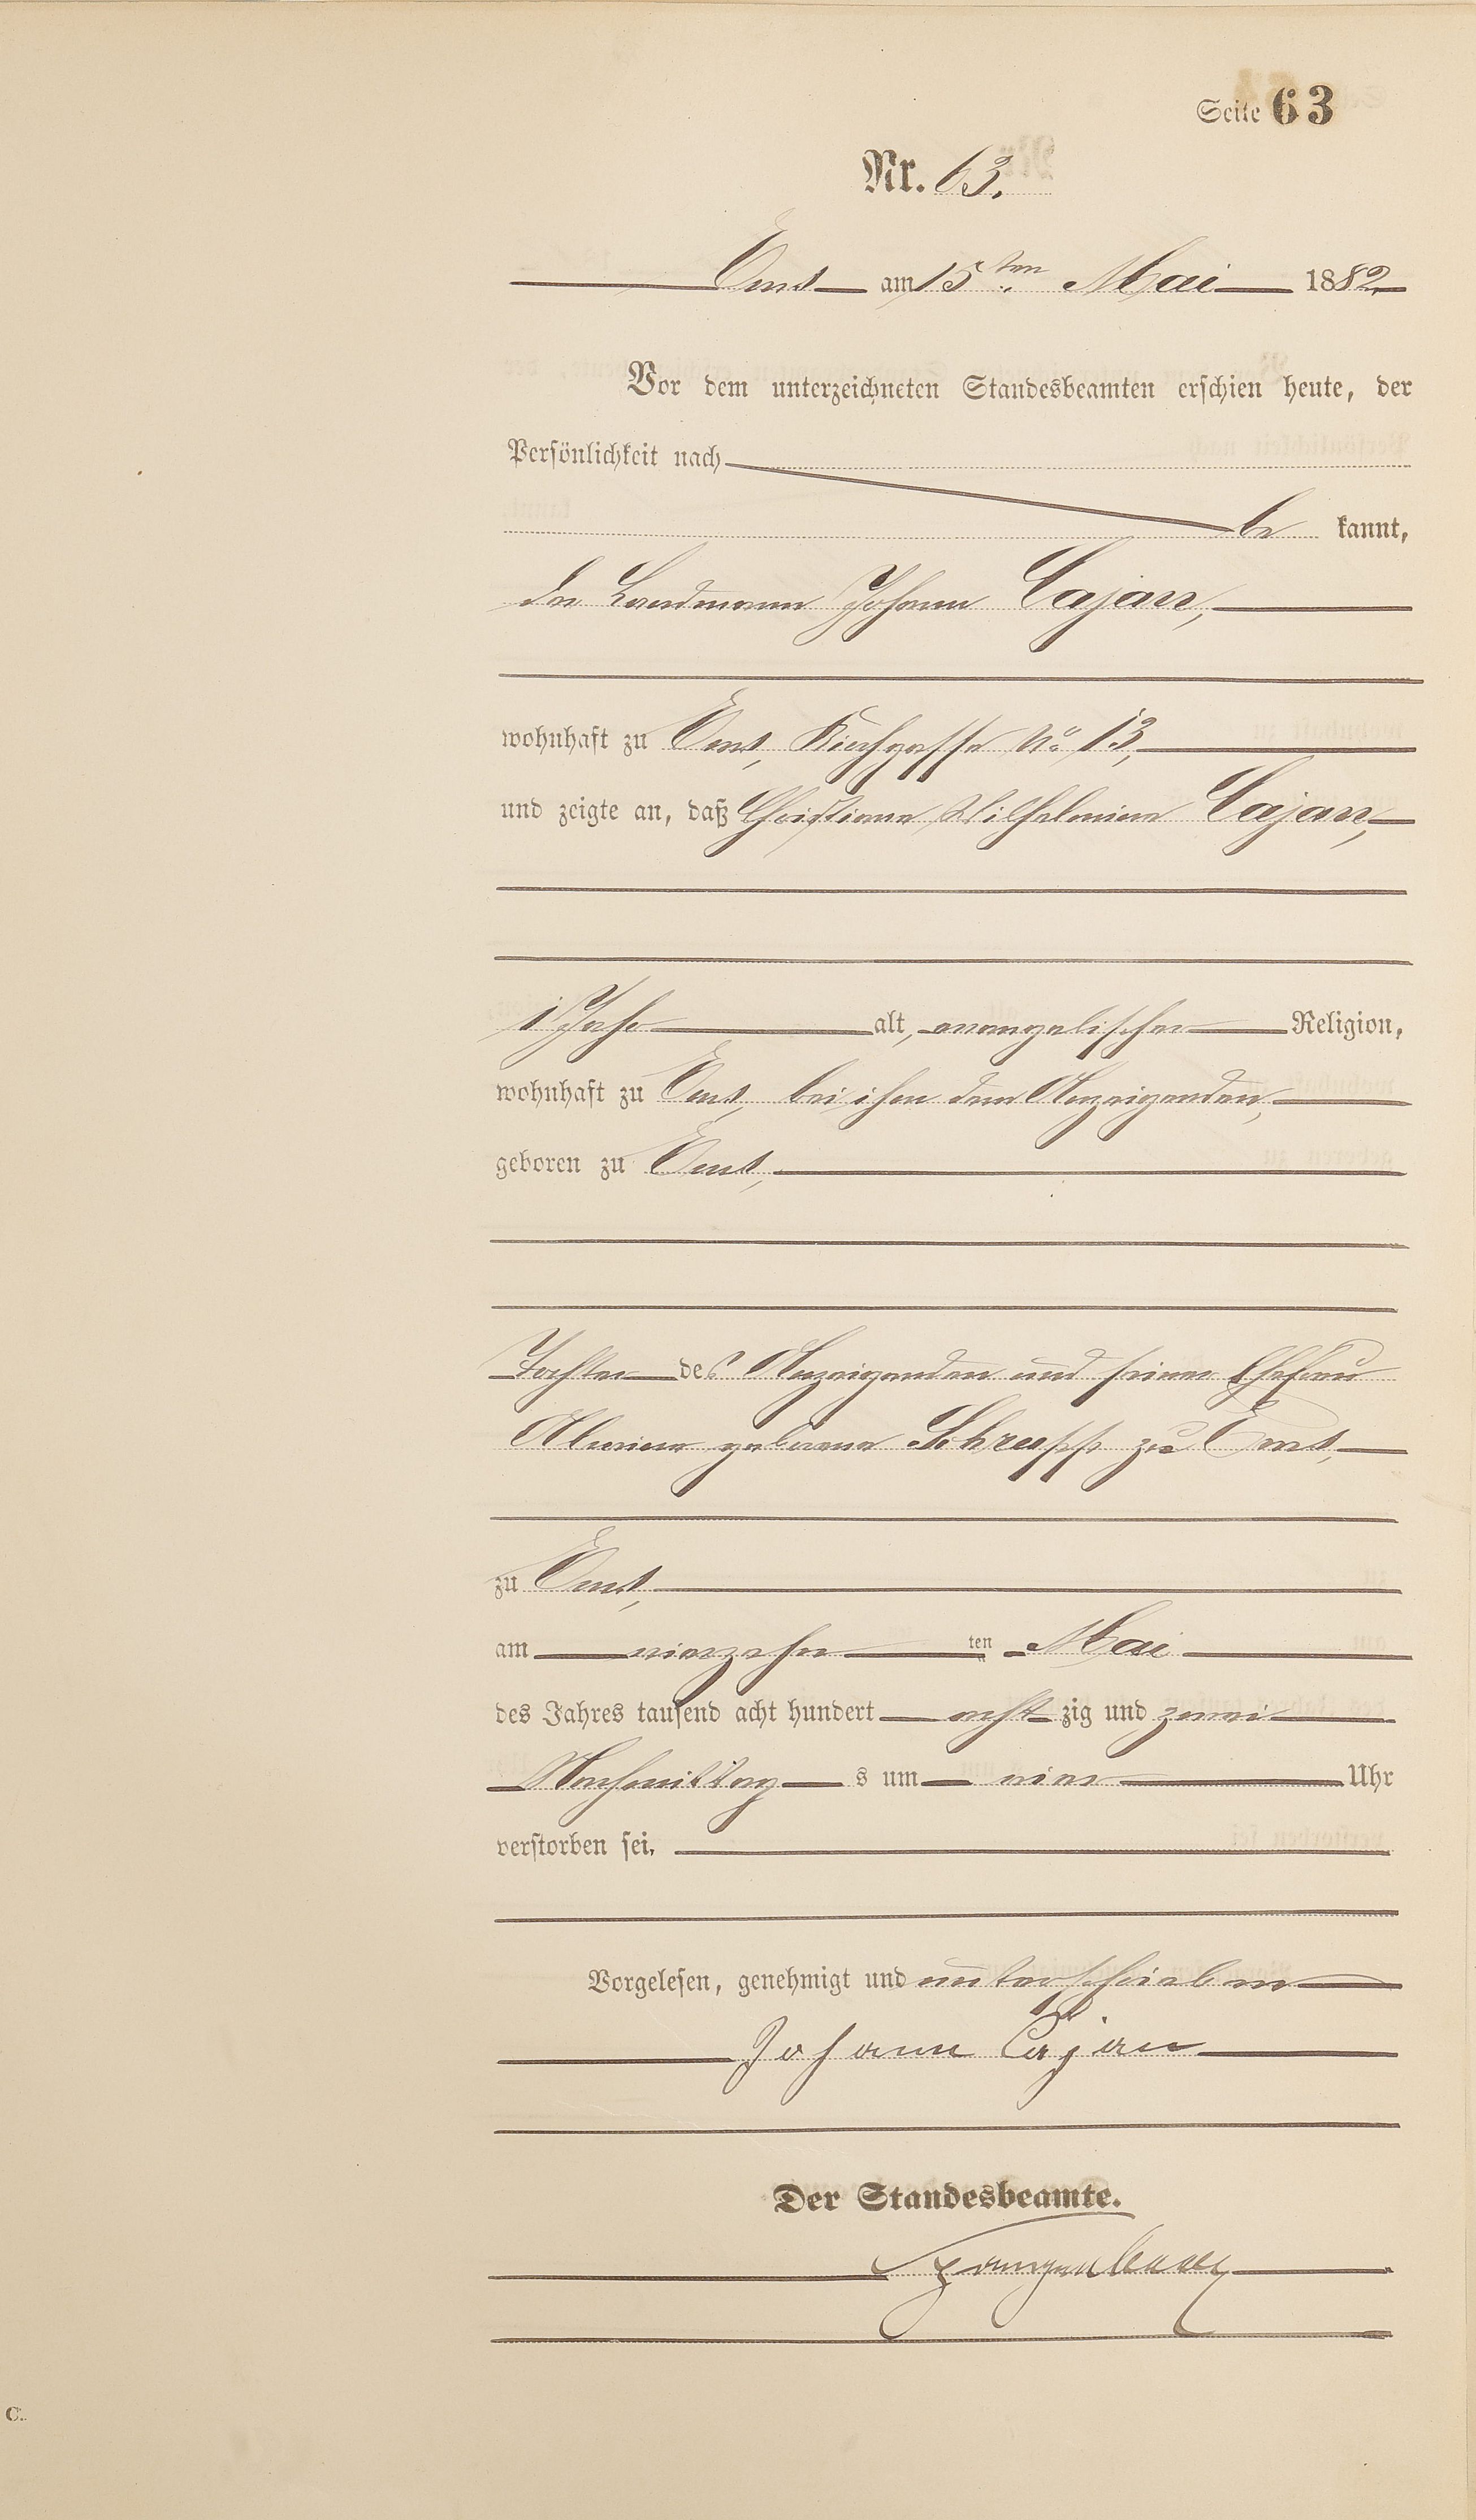 Seite 63
Nr. 63.
Ems am 15ten Mai 1882
Vor dem unterzeichneten Standesbeamten erschien heute, der
Persönlichkeit nach
be kannt,
der Landmann Johann Cajan,
wohnhaft zu Ems, Kirchgasse No 13,
und zeigte an, daß Christiane Wilhelmine Cajan,
1 Jahr alt, evangelischer Religion,
wohnhaft zu Ems, bei ihm dem Anzeigenden,
geboren zu Ems,
Tochter des Anzeigenden und seiner Ehefrau
geborene Schrupp zu Ems,
zu Ems,
am vierzehn ten Mai
des Jahres tausend acht hundert acht zig und zwei
Nachmittag s um vier Uhr
verstorben sei.
Vorgelesen, genehmigt und unterschrieben
Johann Cajan
Der Standesbeamte.
C.